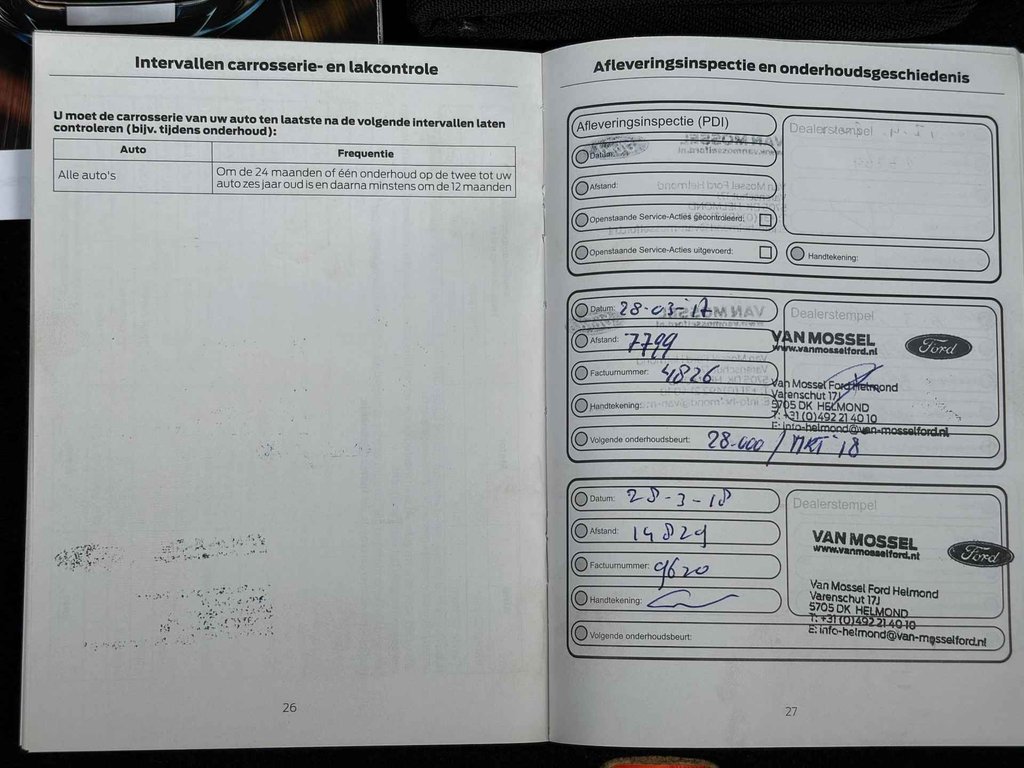 Intervallen carrosserie- en lakcontrole
U moet de carrosserie van uw auto ten laatste na de volgende intervallen laten
controleren (bijv. tijdens onderhoud):
Auto
Frequentie
Alle auto's
Om de 24 maanden of één onderhoud op de twee tot uw
auto zes jaar oud is en daarna minstens om de 12 maanden
26
Afleveringsinspectie en onderhoudsgeschiedenis
Afleveringsinspectie (PDI)
Dealerstempel
Datum:
Afstand:
Openstaande Service-Acties gecontroleerd:
Openstaande Service-Acties uitgevoerd:
Handtekening:
Datum: 28-03-'17
Dealerstempel
Afstand: 7799
VAN MOSSEL
www.vanmosselford.nl
Ford
Factuurnummer: 4826
Van Mossel Ford Helmond
Varenschut 17J
Handtekening:
5705 DK HELMOND
T: +31 (0)492 21 40 10
E: info-helmond@van-mosselford.nl
Volgende onderhoudsbeurt: 28.000 / MRT '18
Datum: 28-3-18
Dealerstempel
Afstand: 14829
VAN MOSSEL
www.vanmosselford.nl
Ford
Factuurnummer: 9620
Van Mossel Ford Helmond
Handtekening:
Varenschut 17J
5705 DK HELMOND
T: +31 (0)492 21 40 10
E: info-helmond@van-mosselford.nl
Volgende onderhoudsbeurt:
27